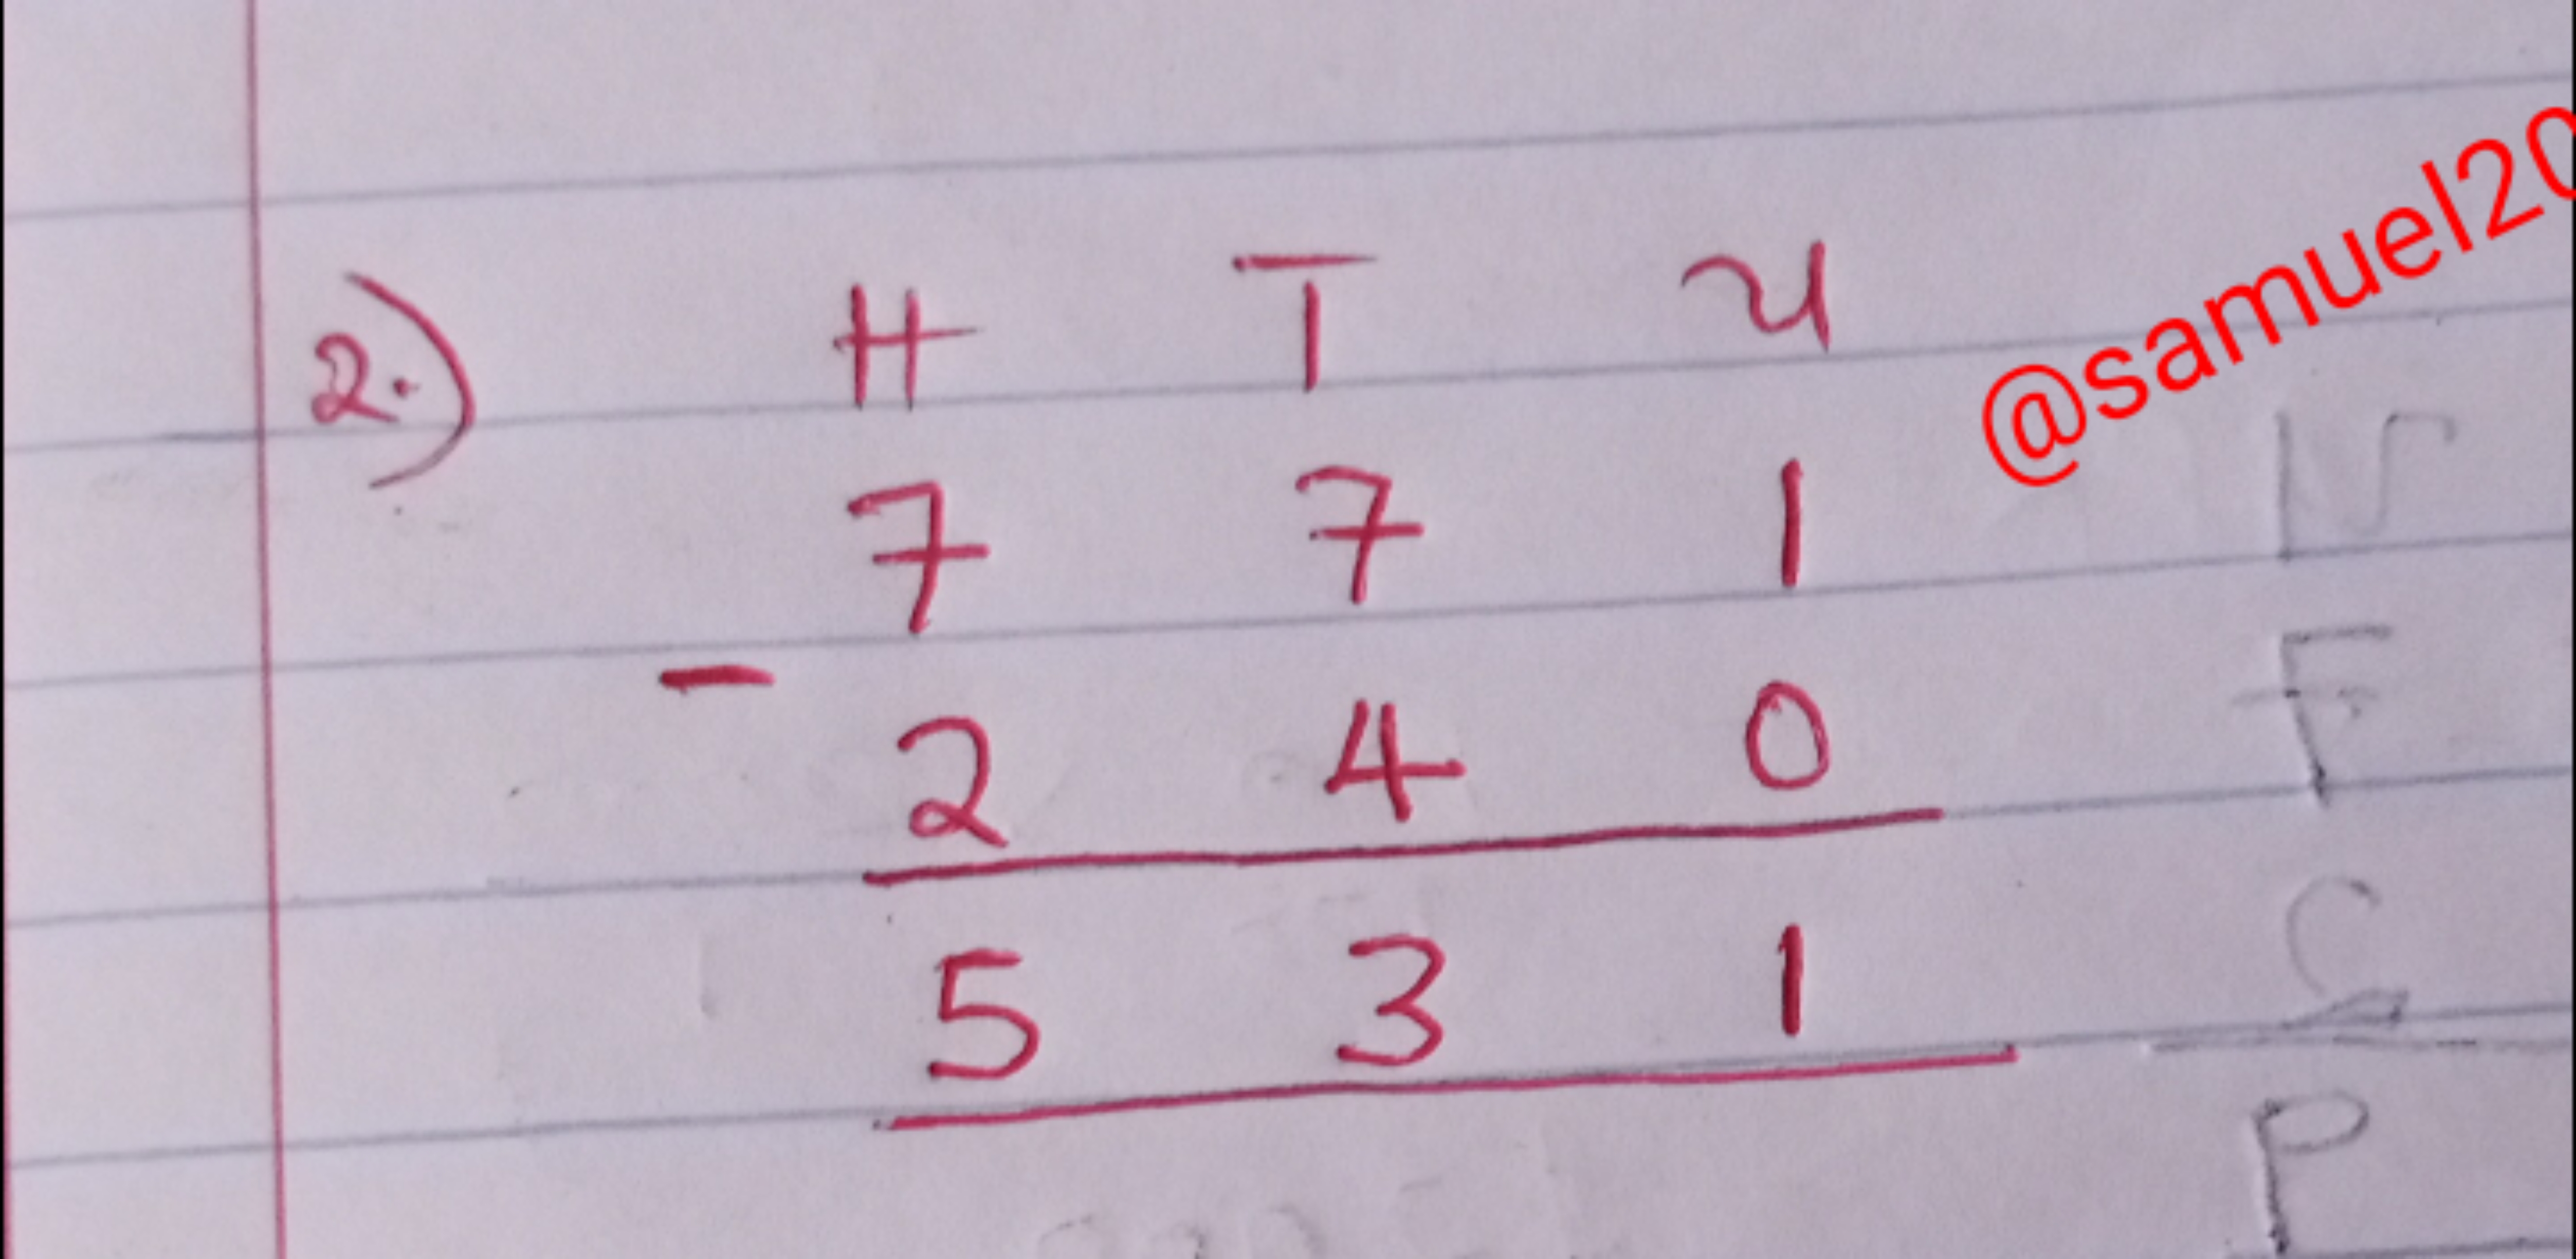 2.) H T U
@samuel20
7 7 1
-
2 4 0
5 3 1
N
F
P